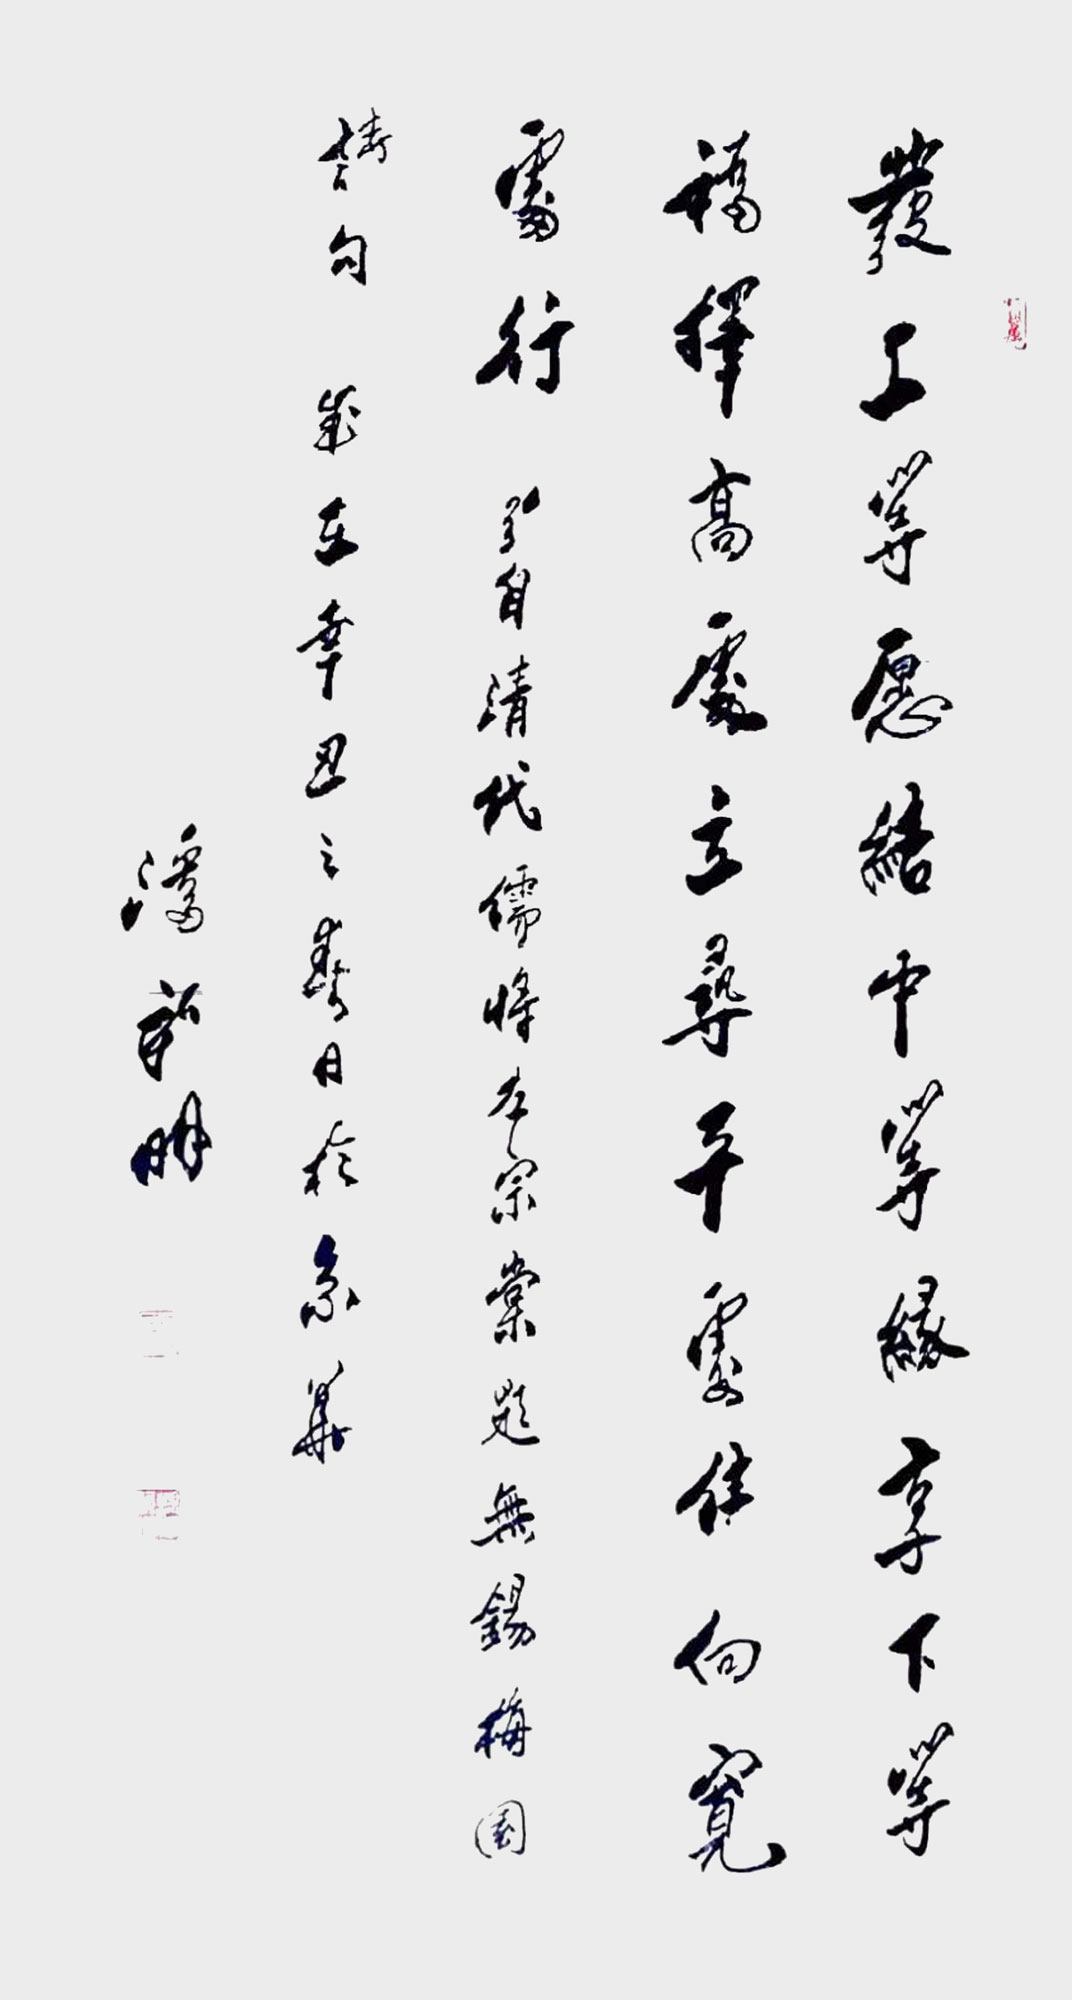 發上等愿結中等緣享下等
福擇高處立尋平處住向寬
處行 引自清代儒將左宗棠題無錫梅園
詩句 歲在辛丑之春日於京華
潘
明